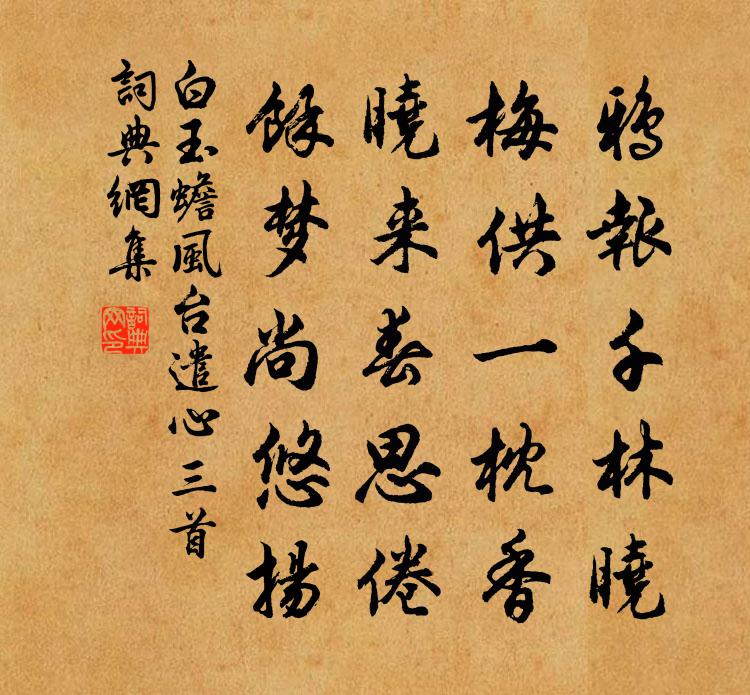 鴉報千林曉
梅供一枕香
曉来春思倦
餘梦尚悠揚
白玉蟾風台遣心三首
詞典網集
詞典網印